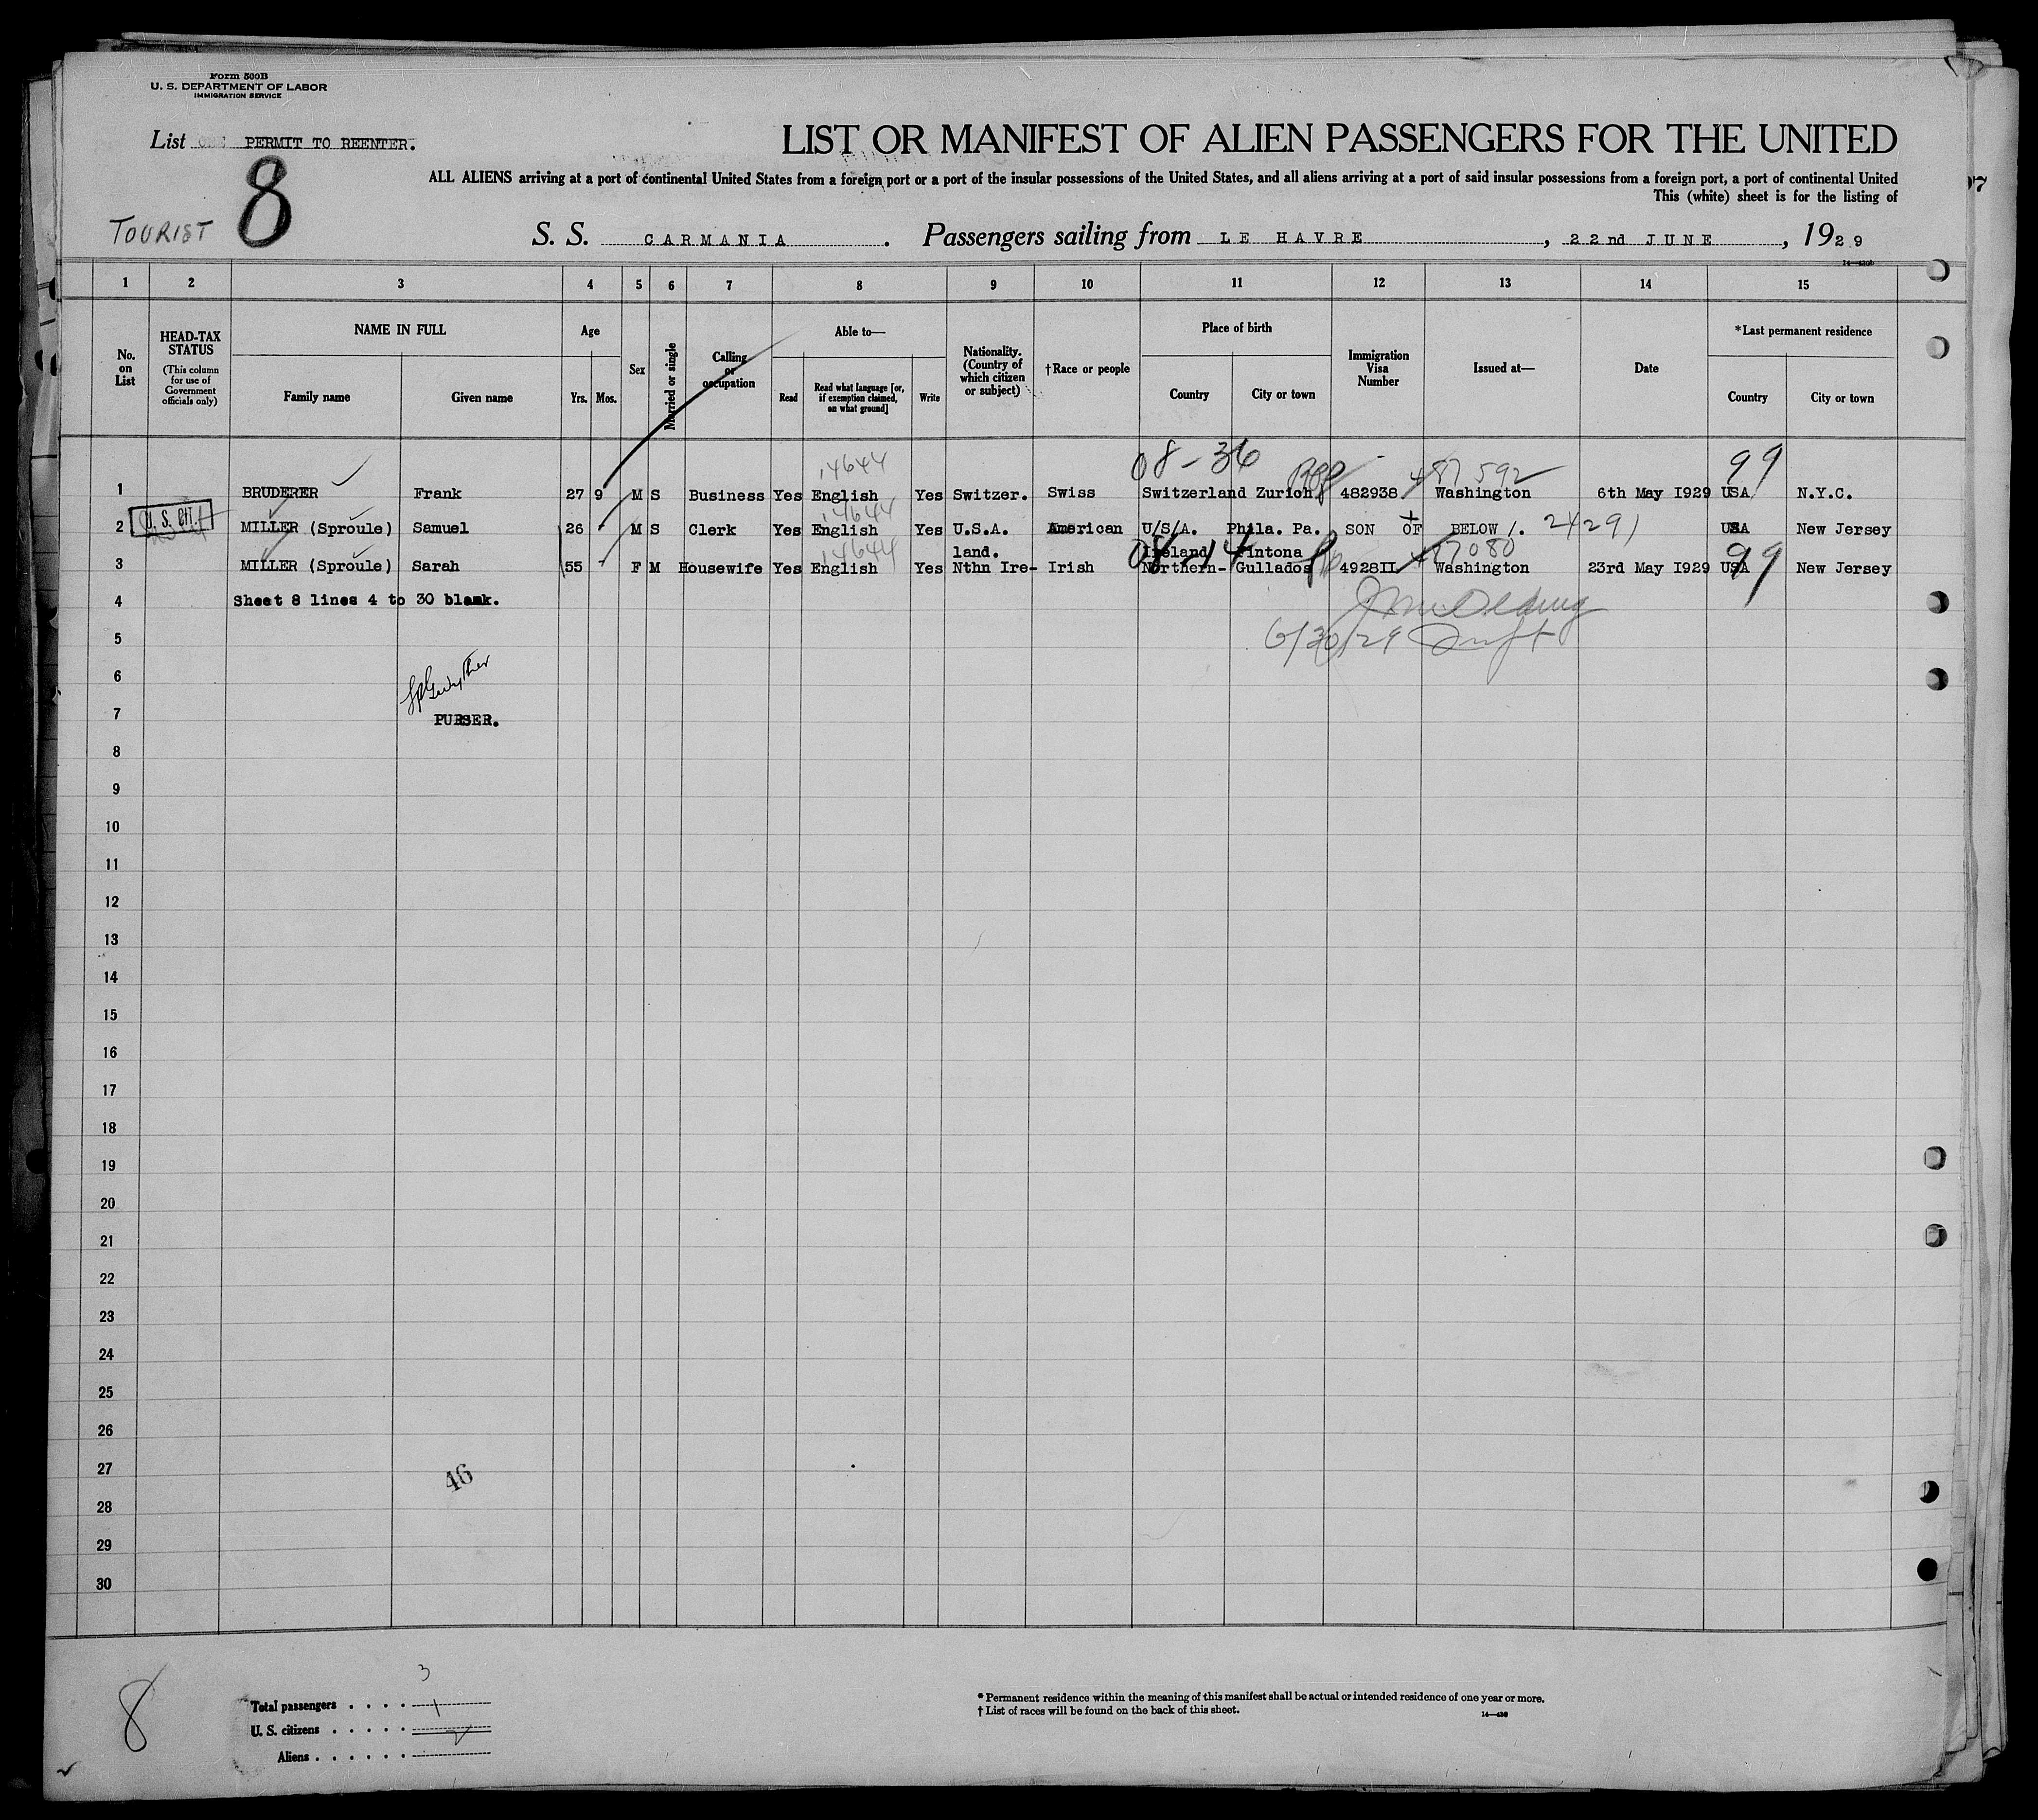 Form 500B
U. S. DEPARTMENT OF LABOR
IMMIGRATION SERVICE
List PERMIT TO REENTER.
8
TOURIST
LIST OR MANIFEST OF ALIEN PASSENGERS FOR THE UNITED
ALL ALIENS arriving at a port of continental United States from a foreign port or a port of the insular possessions of the United States, and all aliens arriving at a port of said insular possessions from a foreign port, a port of continental United
This (white) sheet is for the listing of
S. S. CARMANIA . Passengers sailing from LE HAVRE , 22nd JUNE , 1929
14—430b
1 2 3 4 5 6 7 8 9 10 11 12 13 14 15
No. on List
HEAD-TAX STATUS
(This column for use of Government officials only)
NAME IN FULL
Family name Given name
Age
Yrs. Mos.
Sex
Married or single
Calling or occupation
Able to—
Read Read what language [or, if exemption claimed, on what ground] Write
Nationality. (Country of which citizen or subject)
†Race or people
Place of birth
Country City or town
Immigration Visa Number
Issued at—
Date
*Last permanent residence
Country City or town
14644 08-36 487592 99
1 BRUDERER Frank 27 9 M S Business Yes English Yes Switzer. Swiss Switzerland Zurich 482938 Washington 6th May I929 USA N.Y.C.
U. S. Cit. 14644
2 MILLER (Sproule) Samuel 26 M S Clerk Yes English Yes U.S.A. American U/S/A. Phila. Pa. SON OF BELOW /. 24291 USA New Jersey
14644 land. 08-14 Ireland Fintona 487080 99
3 MILLER (Sproule) Sarah 55 F M Housewife Yes English Yes Nthn Ire- Irish Northern- Gullados 4928II Washington 23rd May I929 USA New Jersey
4 Sheet 8 lines 4 to 30 blank.
6/30/29
5
6
7 PURSER.
8
9
10
11
12
13
14
15
16
17
18
19
20
21
22
23
24
25
26
27
46
28
29
30
8
3
Total passengers . . . . 1
U. S. citizens . . . . . 2
Aliens . . . . . .
* Permanent residence within the meaning of this manifest shall be actual or intended residence of one year or more.
† List of races will be found on the back of this sheet.
14—430